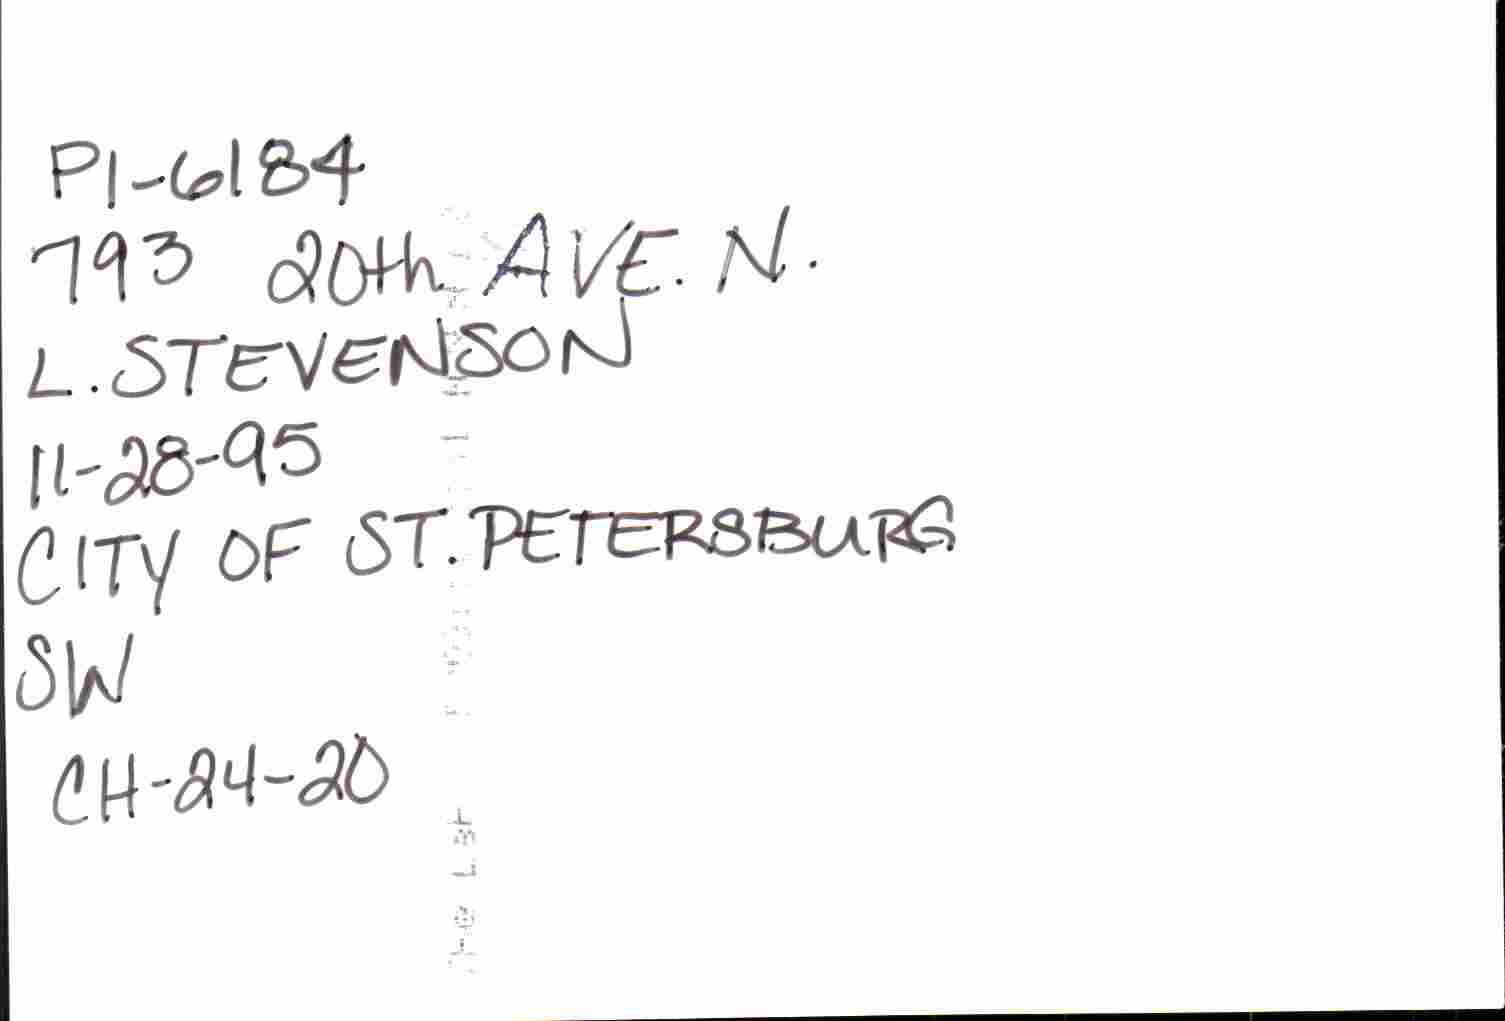 PI-6184
793 20th AVE. N.
L. STEVENSON
11-28-95
CITY OF ST. PETERSBURG
SW
CH-24-20